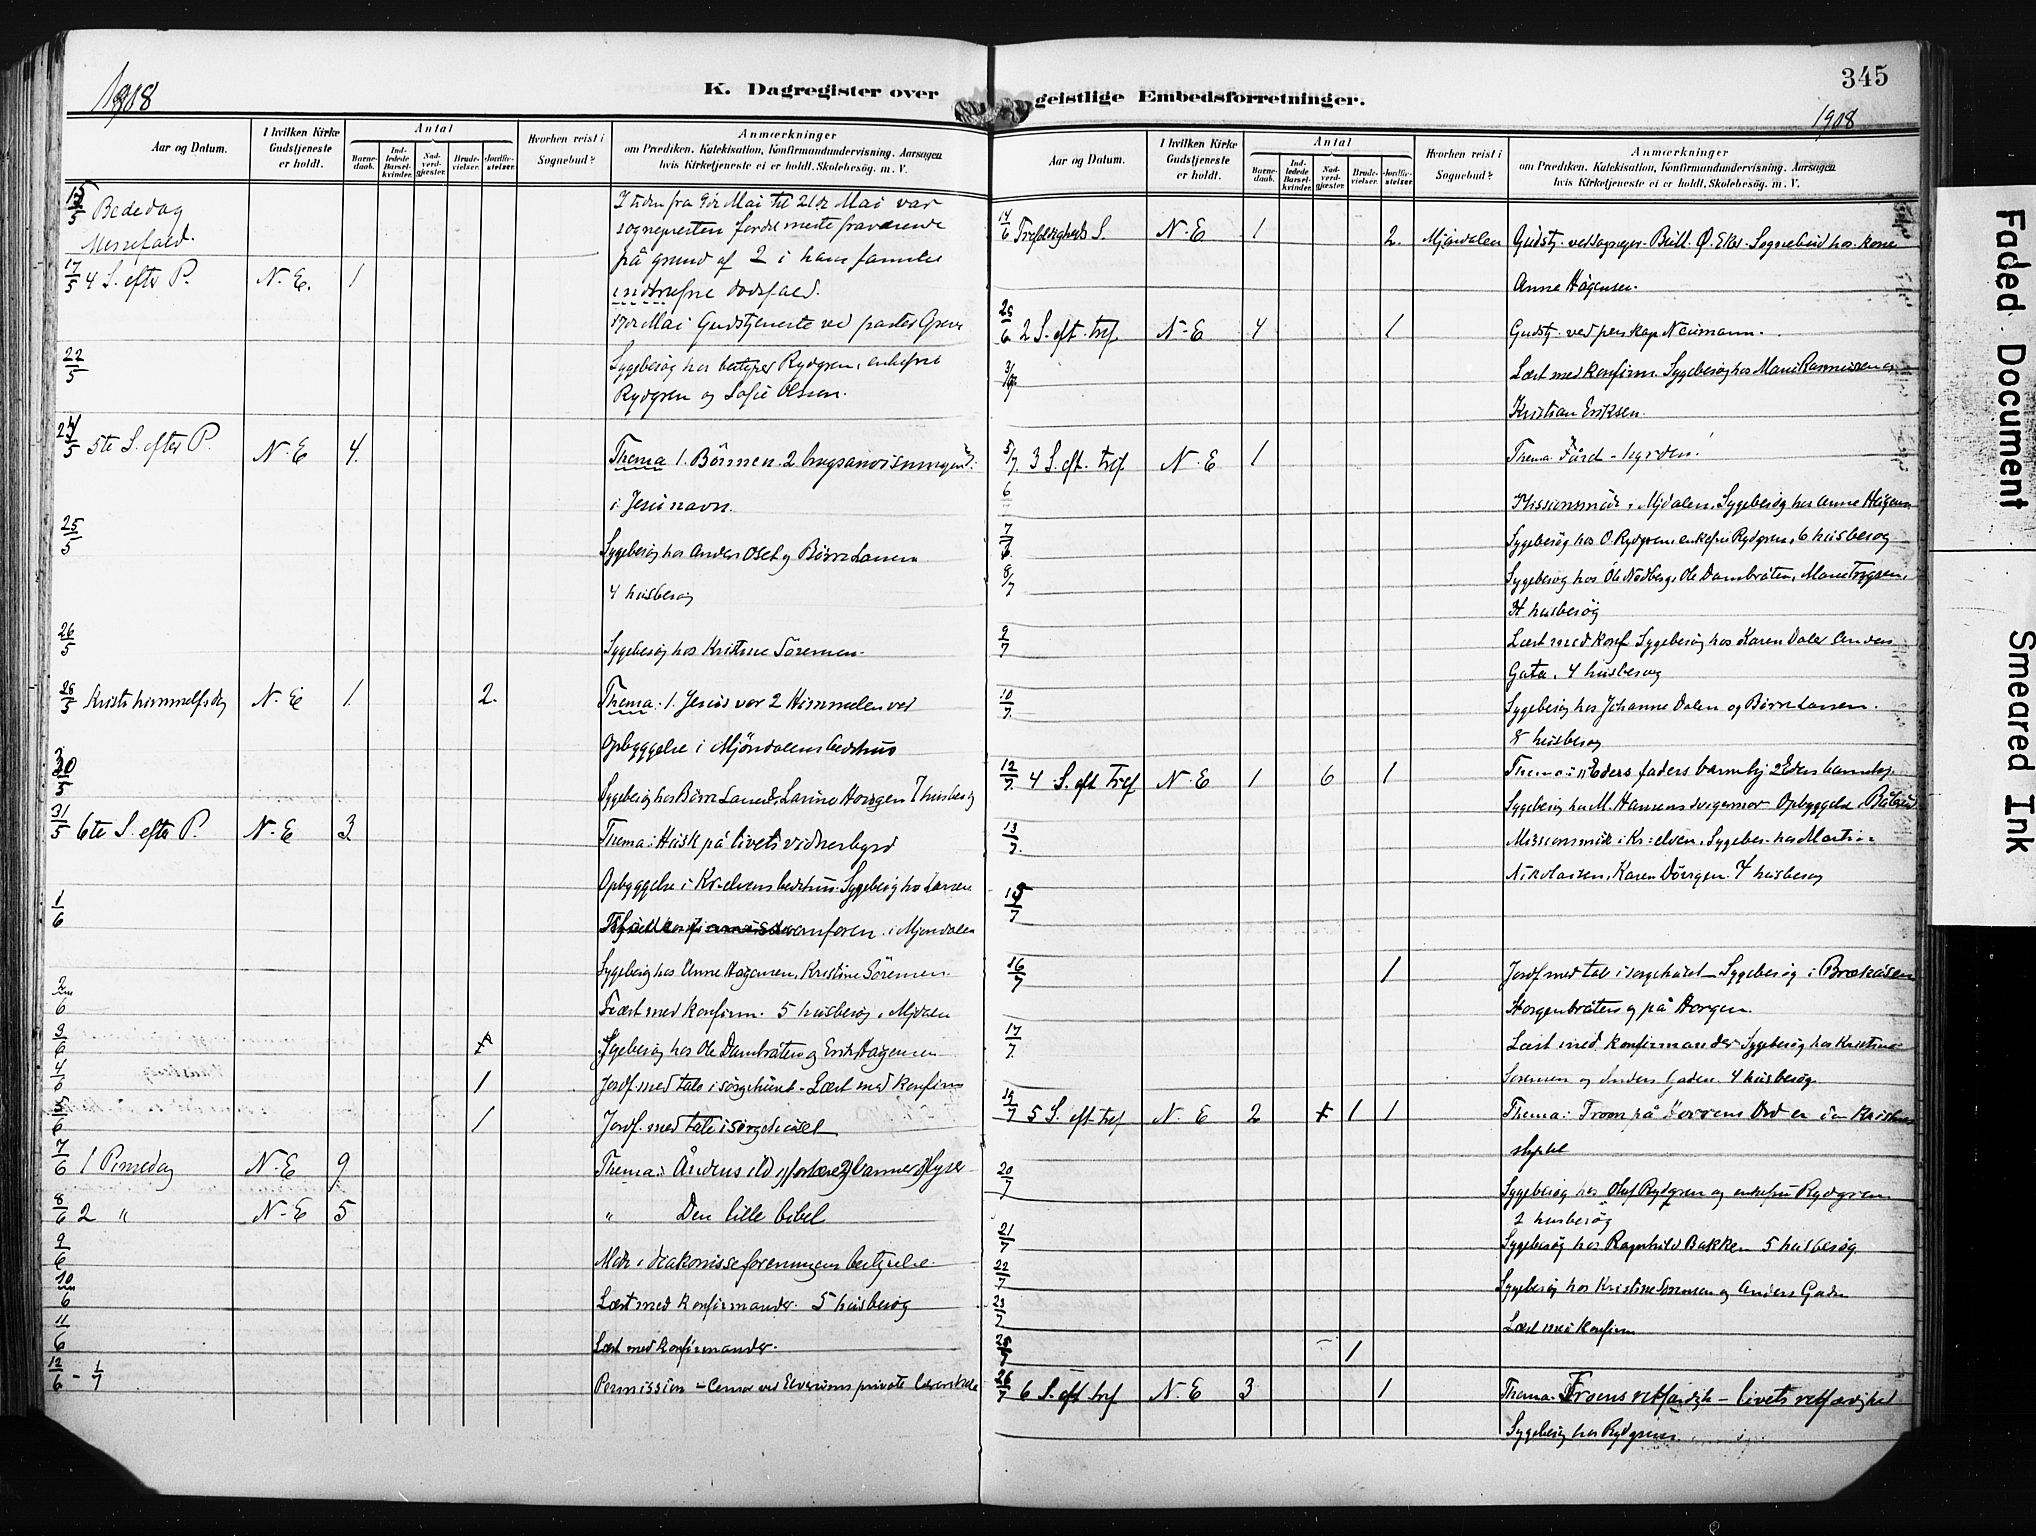 1908
K. Dagregister over
Aar og Datum.
I hvilken Kirke Gudstjeneste er holdt.
Antal
Barne-daab.
Ind-ledede Barsel-kvinder.
Nad-verd-gjæster.
Brude-vielser.
Jordfæ-stelser.
Hvorhen reist i Sognebud?
Anmærkninger
om Prædiken. Katekisation, Konfirmandundervisning. Aarsagen
hvis Kirketjeneste ei er holdt. Skolebesøg. m. V.
15/5 Bededag
Messefald.
I tiden fra 9de Mai til 21de Mai var
sognepresten fordet meste fraværende
på grund af 2 i hans familie
indtrufne dødsfald.
17/5 4 S. efter P. N. E. 1
17de Mai Gudstjeneste ved pastor Greve
22/5 Sygebesøg hos bestyrer Rydgren, enkefru
Rydgren og Sofie Olsen.
24/5 5te S. efter P. N. E 4. Thema 1. Bönnen. 2 brugsanvisningen:
i Jesu navn.
25/5 Sygebesøg hos Anders Oset og Börre Larsen
4 husbesøg
26/5 Sygebesøg hos Kristine Sörensen.
28/5 Kristi himmelfsdag N. E 1. 2. Thema: 1. Jesus vor 2 Himmelen vor
Opbyggelse i Mjöndalens bedehus
30/5 Sygebesøg hos Börre Larsen, Larine Horgen 7 husbesøg
31/5 6te S. efter P. N. E 3. Thema: Husk på livets vidnesbyrd
Opbyggelse i Kr-elvens bedehus. Sygebesøg hos Larsen
1/6 i Mjöndalen
Sygebesøg hos Anne Hagensen, Kristine Sörensen.
2/6 Læst med konfirm. 5 husbesøg i Mjdalen
3/6 Sygebesøg hos Ole Dambråten og Erik Hagensen
4/6 1 Jordf. med tale i sørgehuset. Læst med konfirm
5/6 1 Jordf. med tale i sørgehuset
7/6 1 Pinsedag N. E 9 Thema: Åndens ild 1) fortærer 2) varmer 3) lyser
8/6 2 " N. E 5 " Den lille bibel
9/6 Møde i diakonisseforeningens bestyrelse.
10/6 Læst med konfirmander. 5 husbesøg
11/6 Læst med konfirmander.
12/6 - 1/7 Permission - Censor ved Elverums private lærerskole
345
1908
geistlige Embedsforretninger.
Aar og Datum.
I hvilken Kirke Gudstjeneste er holdt.
Antal
Barne-daab.
Ind-ledede Barsel-kvinder.
Nad-verd-gjæster.
Brude-vielser.
Jordfæ-stelser.
Hvorhen reist i Sognebud?
Anmærkninger
om Prædiken. Katekisation, Konfirmandundervisning. Aarsagen
hvis Kirketjeneste ei er holdt. Skolebesøg. m. V.
14/6 Trefoldigheds S. N. E 1 2. Mjöndalen Gudstj. ved sogneprest Bull. Ø. Eker. Sognebud hos kone
Anne Hågensen.
2 S. eft. tref. N. E 4 1 Gudstj. ved pers kap Neumann.
3/7 Læst med konfirm. Sygebesøg hos Marie Rasmussen og
Kristian Eriksen.
5/7 3 S. eft. tref. N. E 1 Thema: Fåred - hyrden!
6 Missionsmöde i Mjdalen. Sygebesøg hos Anne Hågens
7 Sygebesøg hos O. Rydgren, enkefru Rydgren, 6 husbesøg
8/7 Sygebesøg hos Ole Nedberg, Ole Dambråten,
husbesøg
9/7 Læst med konf. Sygebesøg hos Karen Dalen Anders
Gata. 4 husbesøg
10/7 Sygebesøg hos Johanne Dalen og Börre Larsen.
8 husbesøg
12/7 4 S. eft Tref N. E 1 6 1 Thema:
Sygebesøg hos M. Hansens svigermor Opbyggelse
13/7 Missionsmöde i Kr-elven. Sygebes. hos Martin
Nikolaisen, Karen Dövrgen. 7 husbesøg
15/7
16/7 1 Jordf. med tale i sørgehuset Sygebesøg i
Horgenbråten og på Horgen.
17/7 Læst med konfirmander Sygebesøg hos Kristine
Sorensen og Anders Gaden. 4 husbesøg.
19/7 5 S. eft tref N. E 2 1 1 Thema: Troen på Herrens Ord er den kristnes
20/7 Sygebesøg hos Oluf Rydgren og enkefru Rydgren
2 husbesøg
21/7 Sygebesøg hos Ragnhild Bakken 5 husbesøg.
22/7 Sygebesøg hos Kristine Sorensen og Anders Gaden
23/7 Læst med konfirm
25/7 1
26/7 6 S. eft tref. N. E 3 1 Thema: Troens retfærdigh - livets retfærdighed
Sygebesøg hos Rydgren
Faded Document
Smeared Ink